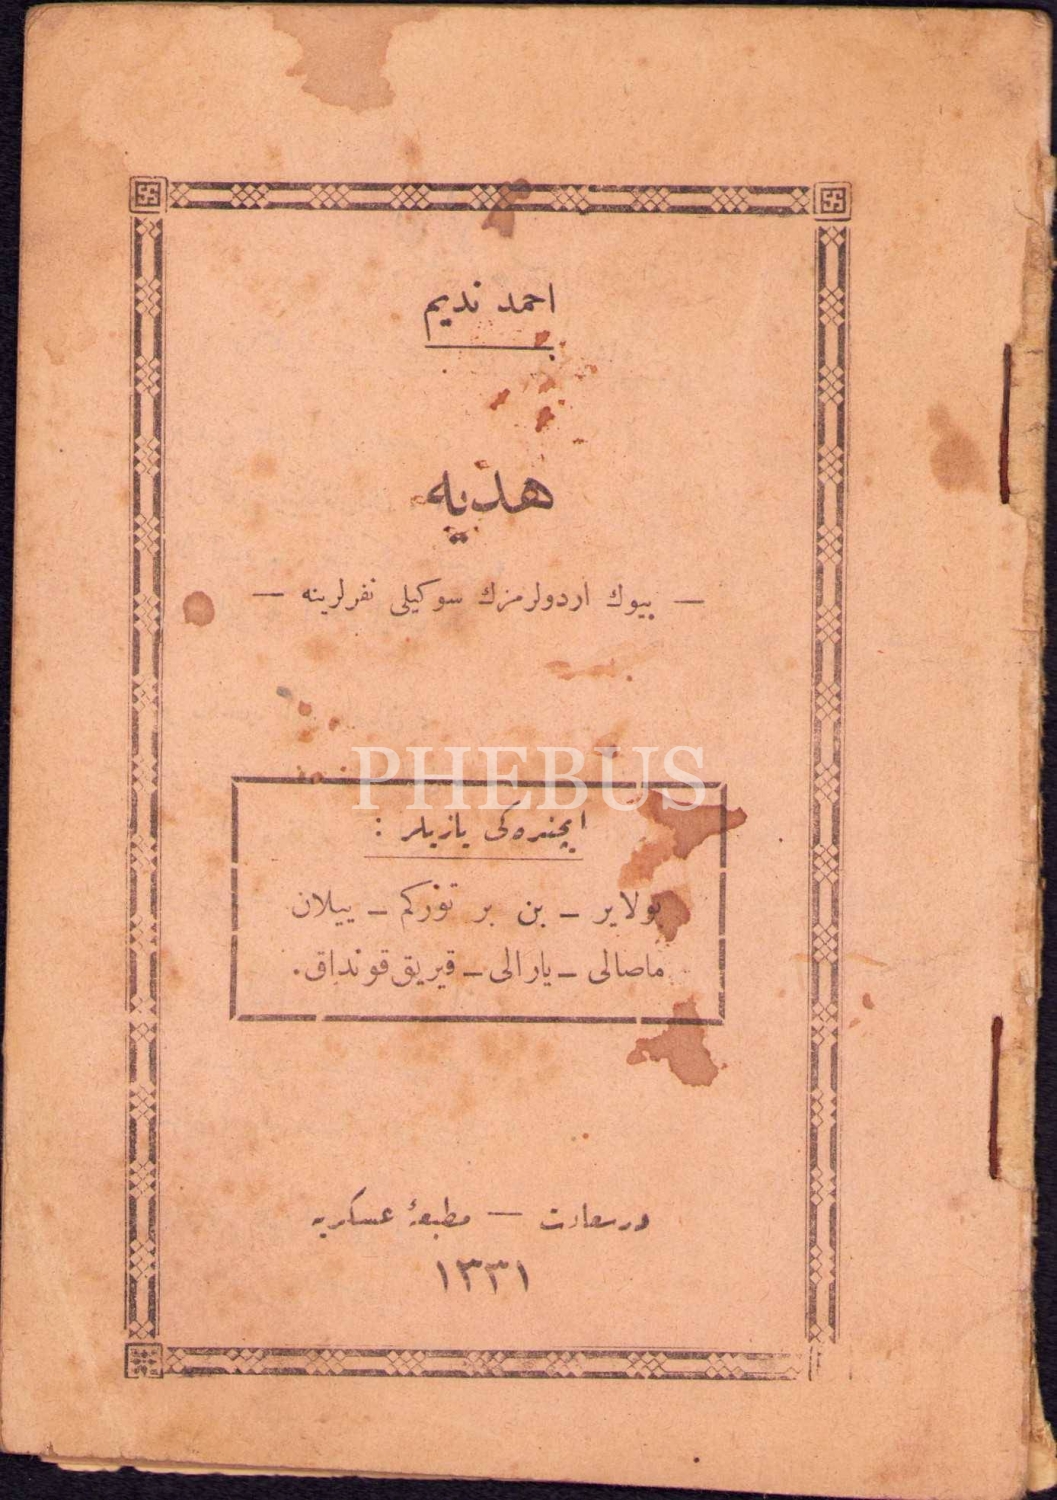 احمد نديم
هديه
— بيوك اردولرمزك سوكيلى نفرلرينه —
PHEBUS
ايچنده‌كى يازيلر :
بولاير ـ بن بر توركم ـ ييلان
ماصالى ـ يارالى ـ قيريق قونداق.
درسعادت — مطبعۀ عسكريه
١٣٣١